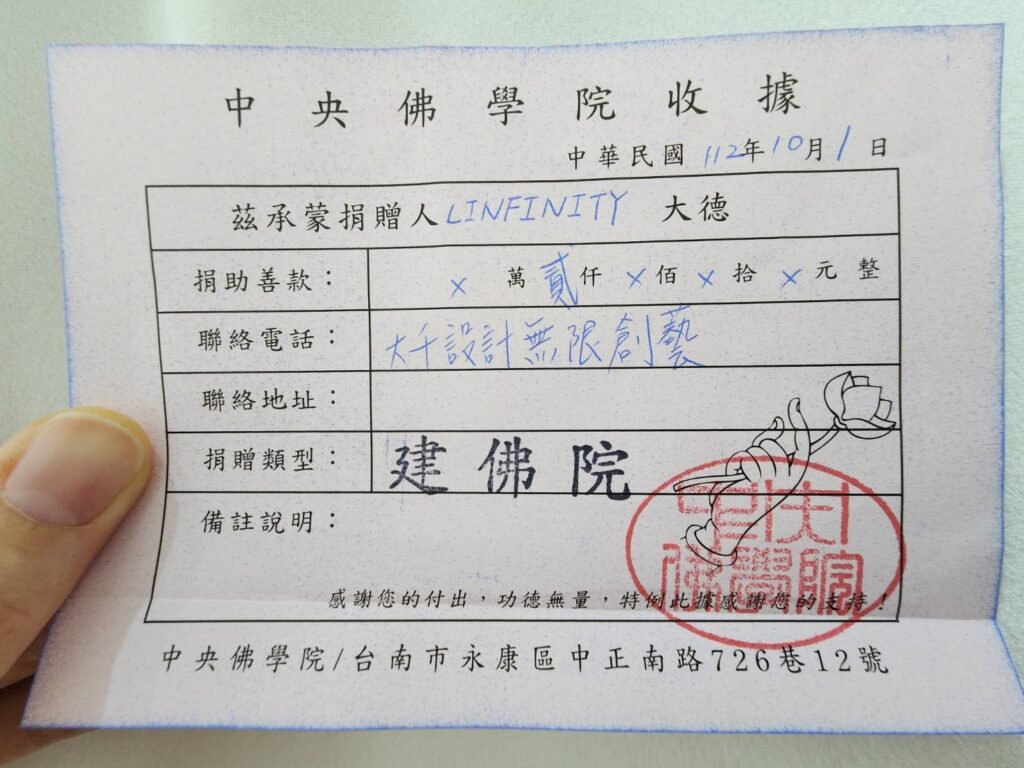 中央佛學院收據
中華民國 112年10月1日
茲承蒙捐贈人LINFINITY 大德
捐助善款： x 萬貳仟x佰x拾x元整
聯絡電話： 大千設計無限創藝
聯絡地址：
捐贈類型： 建佛院
備註說明：
中央
佛學院
感謝您的付出，功德無量，特例此據感謝您的支持！
中央佛學院/台南市永康區中正南路726巷12號